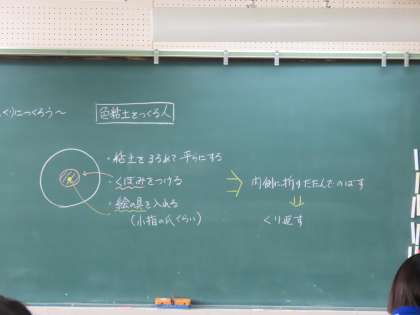 くりにつくろう～
色粘土をつくる人
・粘土をまるめて平らにする
・くぼみをつける
・絵の具を入れる
(小指の爪くらい)
内側に折りたたんでのばす
くり返す